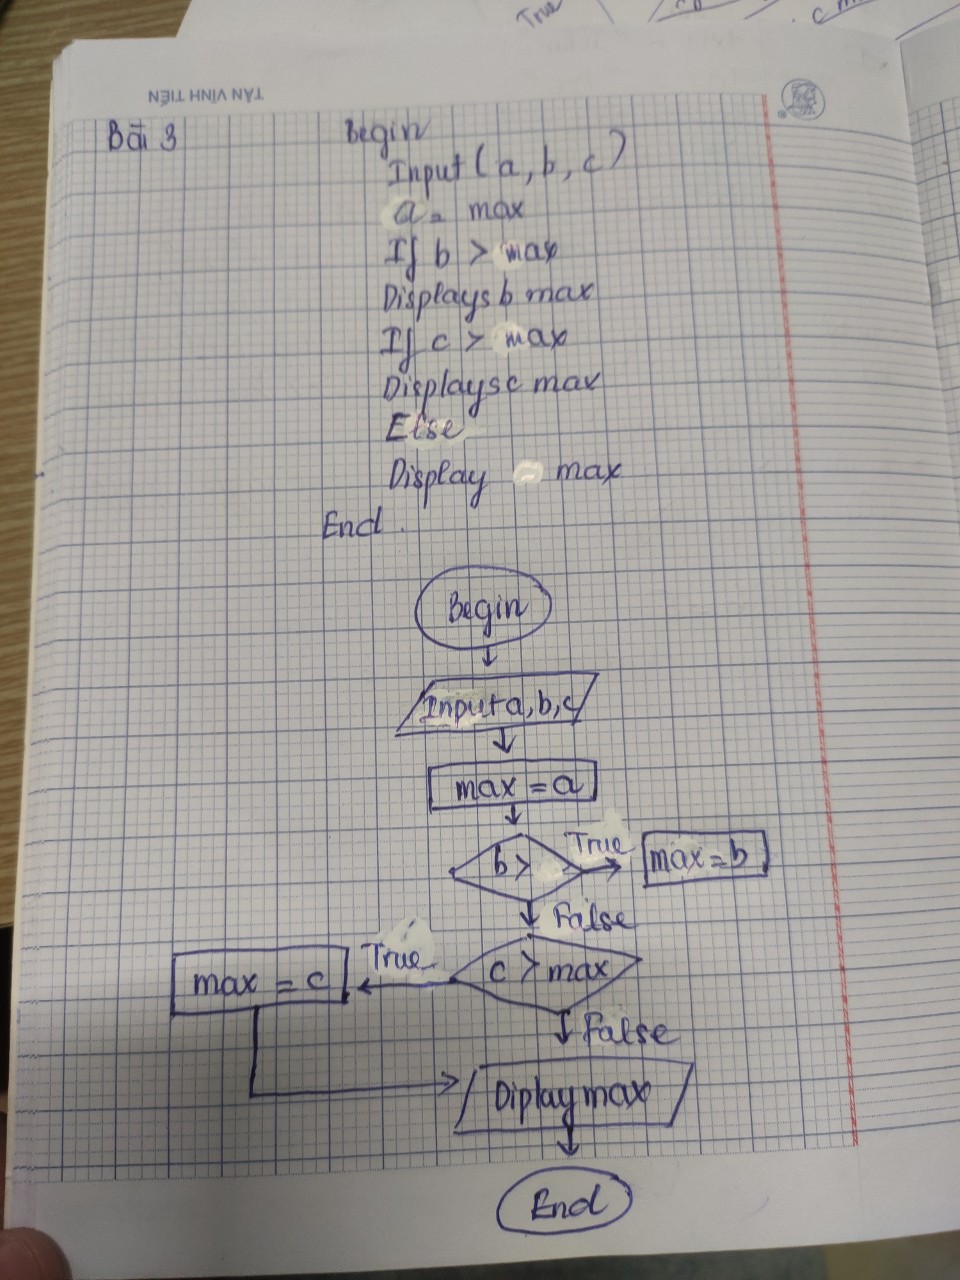 True
TÂN VĨNH TIẾN
Bài 3
Begin
Input (a, b, c)
a = max
If b > max
Displays b max
If c > max
Displays c max
Else
Display max
End.
Begin
Input a, b, c
max = a
b >
True
max = b
False
c > max
True
max = c
False
Diplay max
End